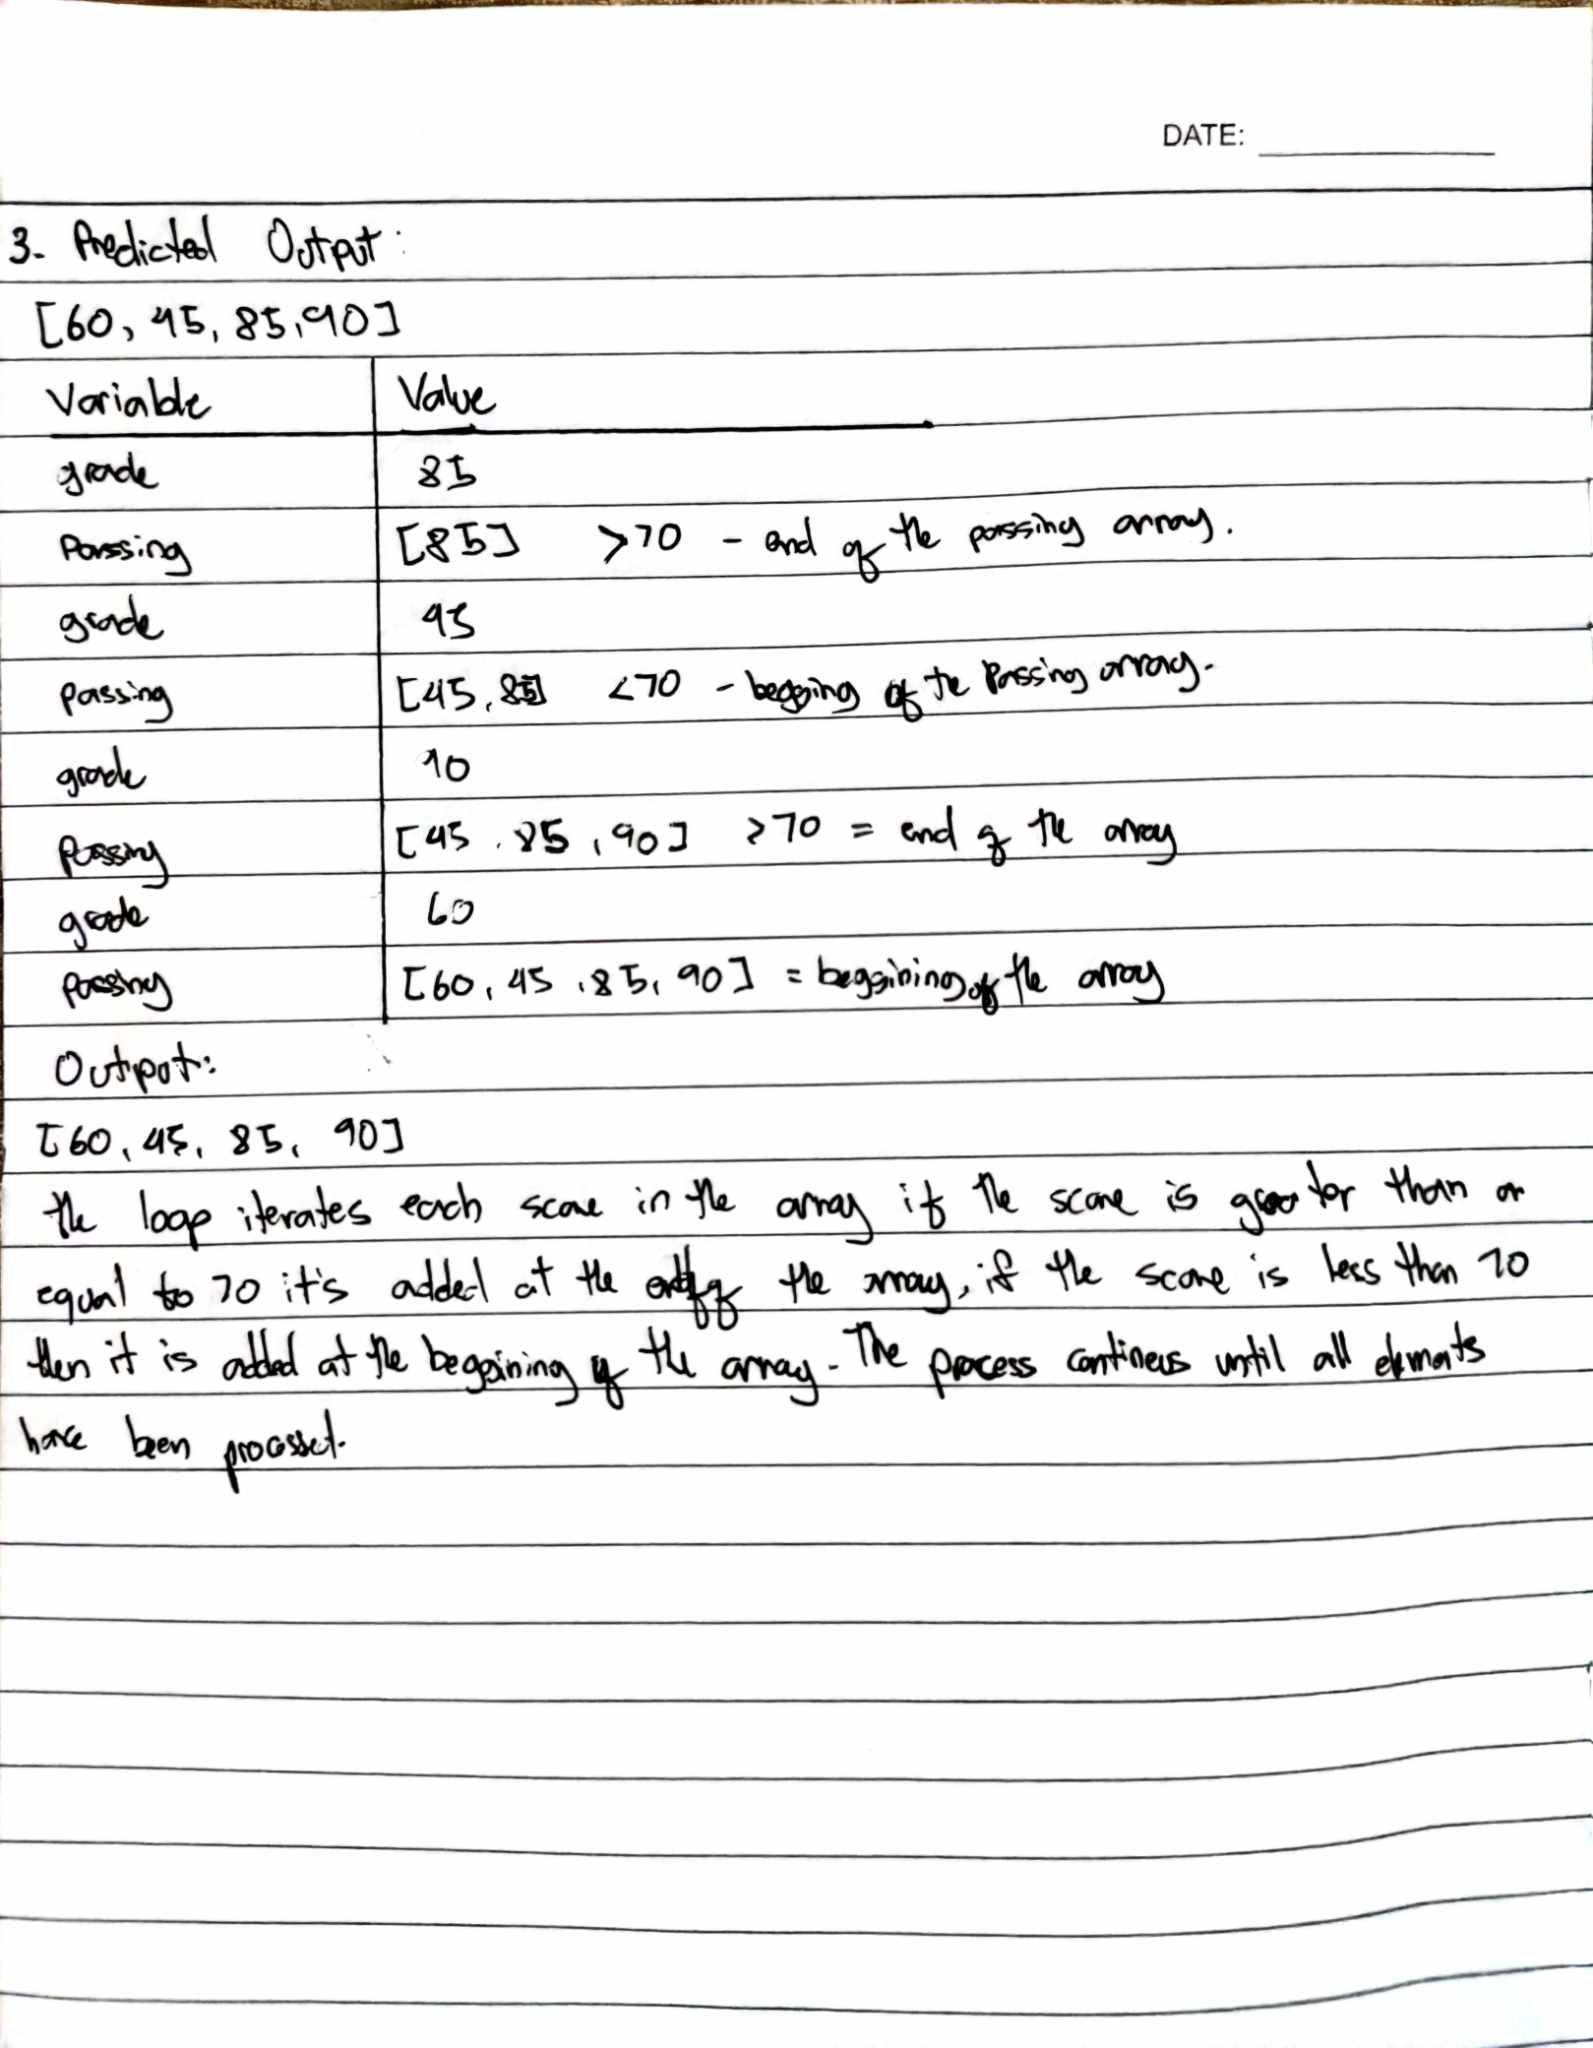 DATE:
3. Predicted Output:
[60, 45, 85, 90]
Variable Value
grade 85
Passing [85] >70 - end of the passing array.
grade 45
passing [45, 85] <70 - begging of the Passing array.
grade 90
Passing [45, 85, 90] >70 = end of the array
grade 60
passing [60, 45, 85, 90] = beggining of the array
Output:
[60, 45, 85, 90]
the loop iterates each score in the array if the score is greater than or
equal to 70 it's added at the end of the array, if the score is less than 70
then it is added at the beggining of the array. The process continews until all elements
have been processed.